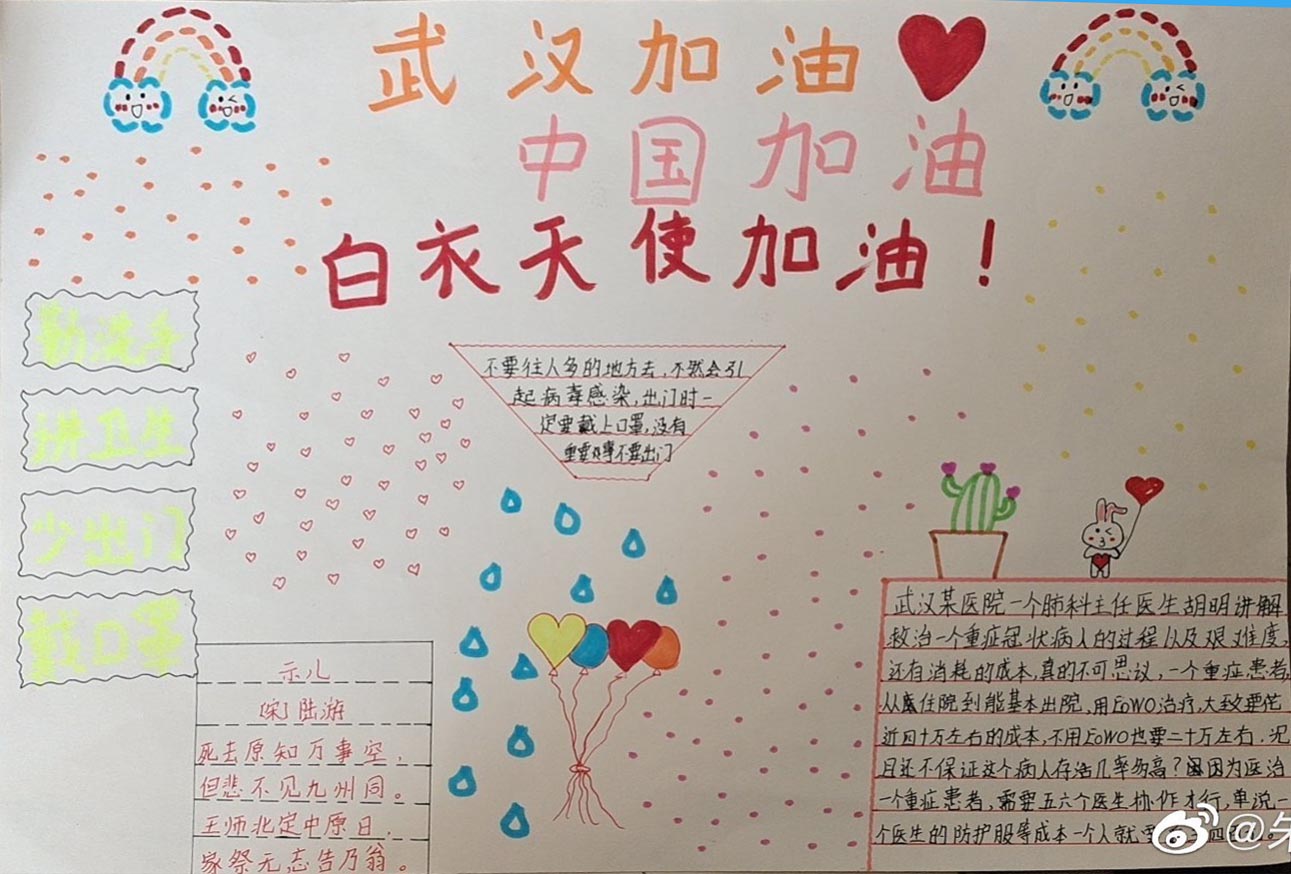 武汉加油
中国加油
白衣天使加油！
勤洗手
讲卫生
少出门
戴口罩
不要往人多的地方去，不然会引
起病毒感染，出门时一
定要戴上口罩，没有
重要的事不要出门
示儿
[宋]陆游
死去原知万事空，
但悲不见九州同。
王师北定中原日，
家祭无忘告乃翁。
武汉某医院一个肺科主任医生胡明讲解
救治一个重症冠状病人的过程以及艰难度，
还有消耗的成本，真的不可思议，一个重症患者，
从住院到能基本出院，用EoWO治疗，大致要花
近四十万左右的成本，不用EoWO也要二十万左右．况
且还不保证这个病人存活几率多高？因为医治
一个重症患者，需要五六个医生协作才行，单说一
个医生的防护服等成本一个人就要
@朱